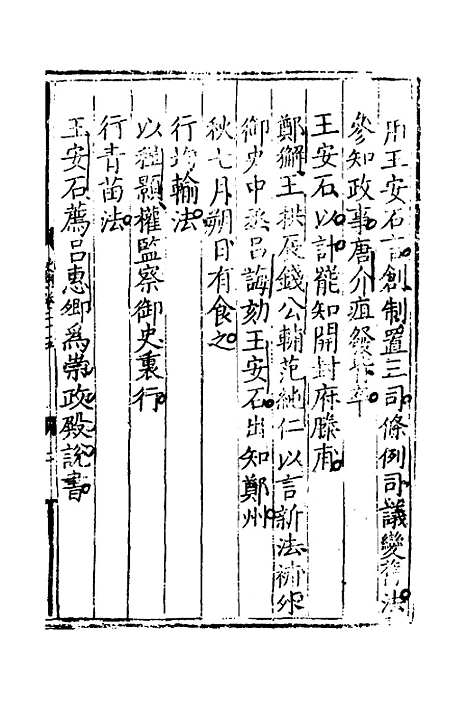 用王安石言創制置三司條例司議變法
參知政事唐介疽發背卒
王安石以計罷知開封府滕甫
鄭獬王拱辰錢公輔范純仁以言新法補外
御史中丞呂誨劾王安石出知鄭州
秋七月朔日有食之
行均輸法
以程顥權監察御史裏行
行青苗法
王安石薦呂惠卿爲崇政殿說書